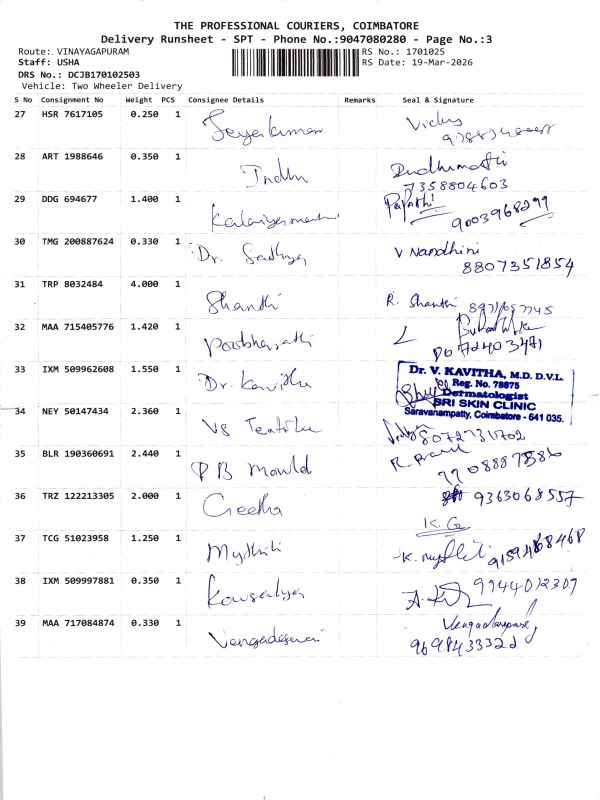 THE PROFESSIONAL COURIERS, COIMBATORE
Delivery Runsheet - SPT - Phone No.:9047080280 - Page No.:3
Route: VINAYAGAPURAM
RS No.: 1701025
Staff: USHA
RS Date: 19-Mar-2026
DRS No.: DCJB170102503
Vehicle: Two Wheeler Delivery
S No Consignment No Weight PCS Consignee Details Remarks Seal & Signature
27 HSR 7617105 0.250 1 Jeyakumar
28 ART 1988646 0.350 1 Indhu
7358804603
29 DDG 694677 1.400 1
9003968299
30 TMG 200887624 0.330 1 Dr. Sathya V Nandhini
8807351854
31 TRP 8032484 4.000 1 Shanthi R. Shanthi
32 MAA 715405776 1.420 1
33 IXM 509962608 1.550 1 Dr. Kavitha
Dr. V. KAVITHA, M.D. D.V.L.
Reg. No. 78875
Dermatologist
SRI SKIN CLINIC
Saravanampatty, Coimbatore - 641 035.
34 NEY 50147434 2.360 1 VS
8072731702
35 BLR 190360691 2.440 1 P B Mould
36 TRZ 122213305 2.000 1 Geetha 9363068557
K. G
37 TCG 51023958 1.250 1 Mythili
38 IXM 509997881 0.350 1 Kousalya 9944012307
39 MAA 717084874 0.330 1